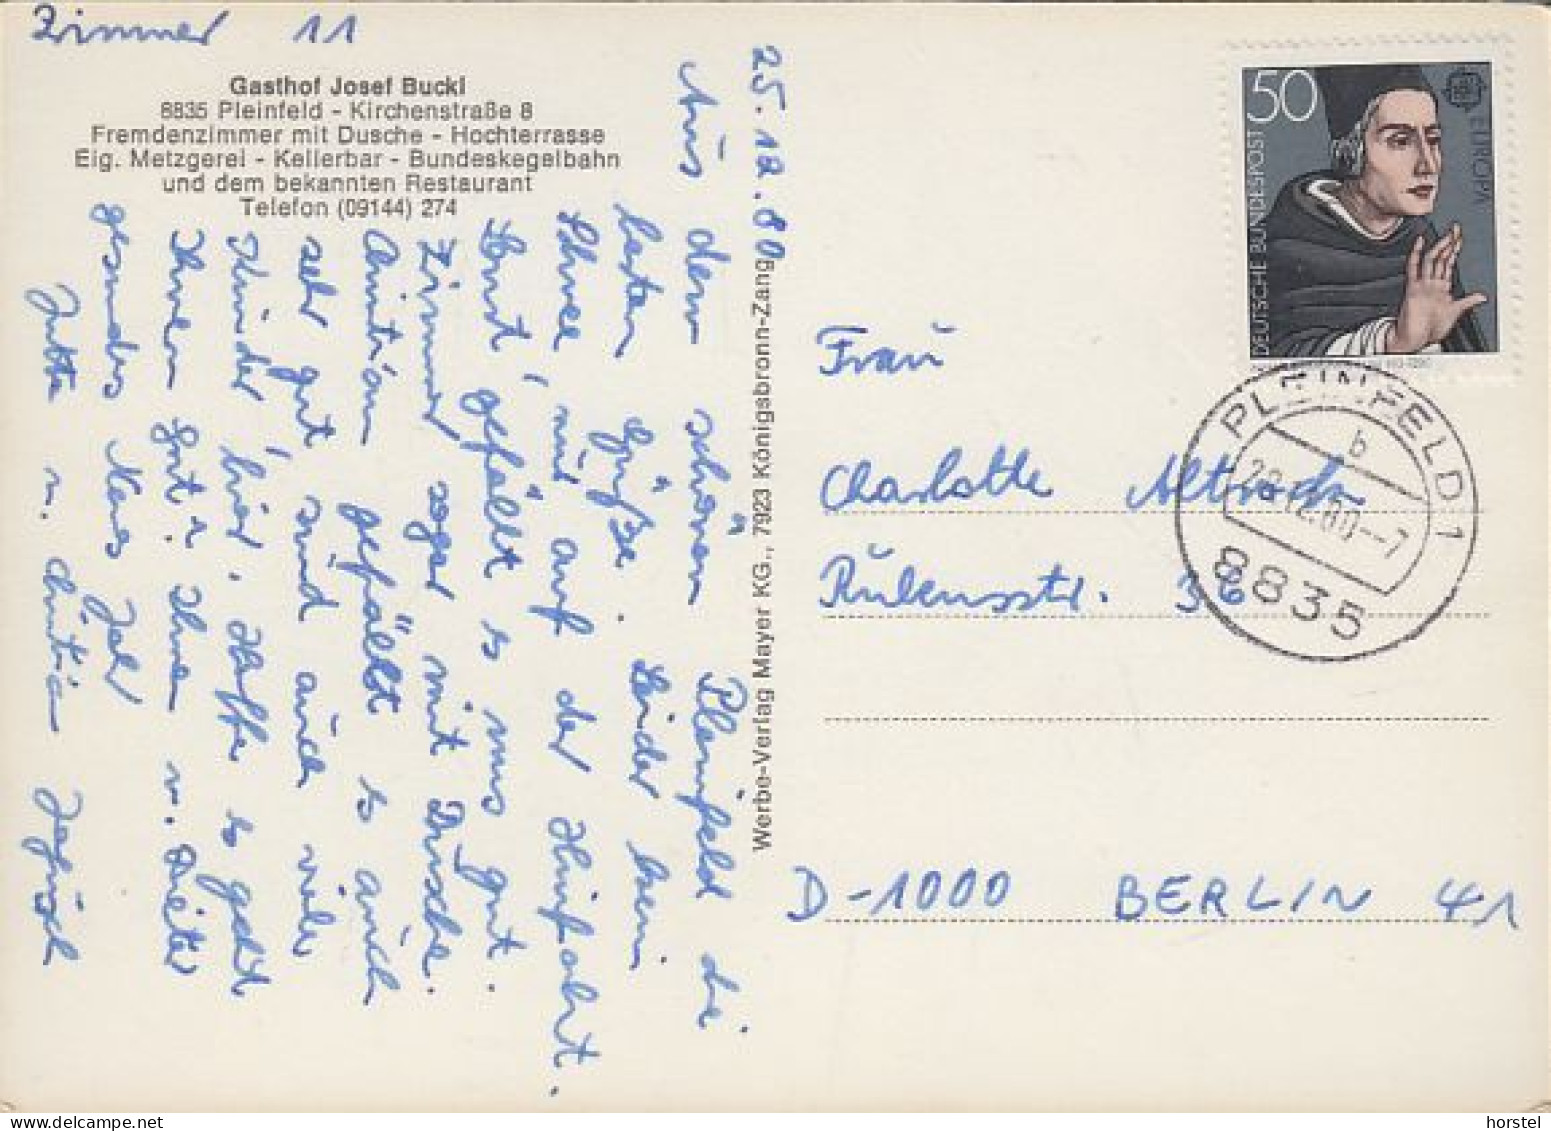 Zimmer 11
Gasthof Josef Buckl
8835 Pleinfeld - Kirchenstraße 8
Fremdenzimmer mit Dusche - Hochterrasse
Eig. Metzgerei - Kellerbar - Bundeskegelbahn
und dem bekannten Restaurant
Telefon (09144) 274
25.12.80
Aus dem schönen Pleinfeld die
besten Grüße. Leider kein
Schnee, nur auf der Hinfahrt.
Sonst gefällt es uns gut.
Zimmer sogar mit Dusche.
gefällt es auch
sehr gut sind auch viele
Kinder hier. Hoffe es geht
Ihnen gut? Ihnen u. Dieter
gesundes Neues Jahr
Jutta u.
Werbe-Verlag Mayer KG., 7923 Königsbronn-Zang
50
DEUTSCHE BUNDESPOST
EUROPA
PLEINFELD 1
b
8835
Frau
Charlotte
Rubensstr. 36
D-1000 BERLIN 41
horstel